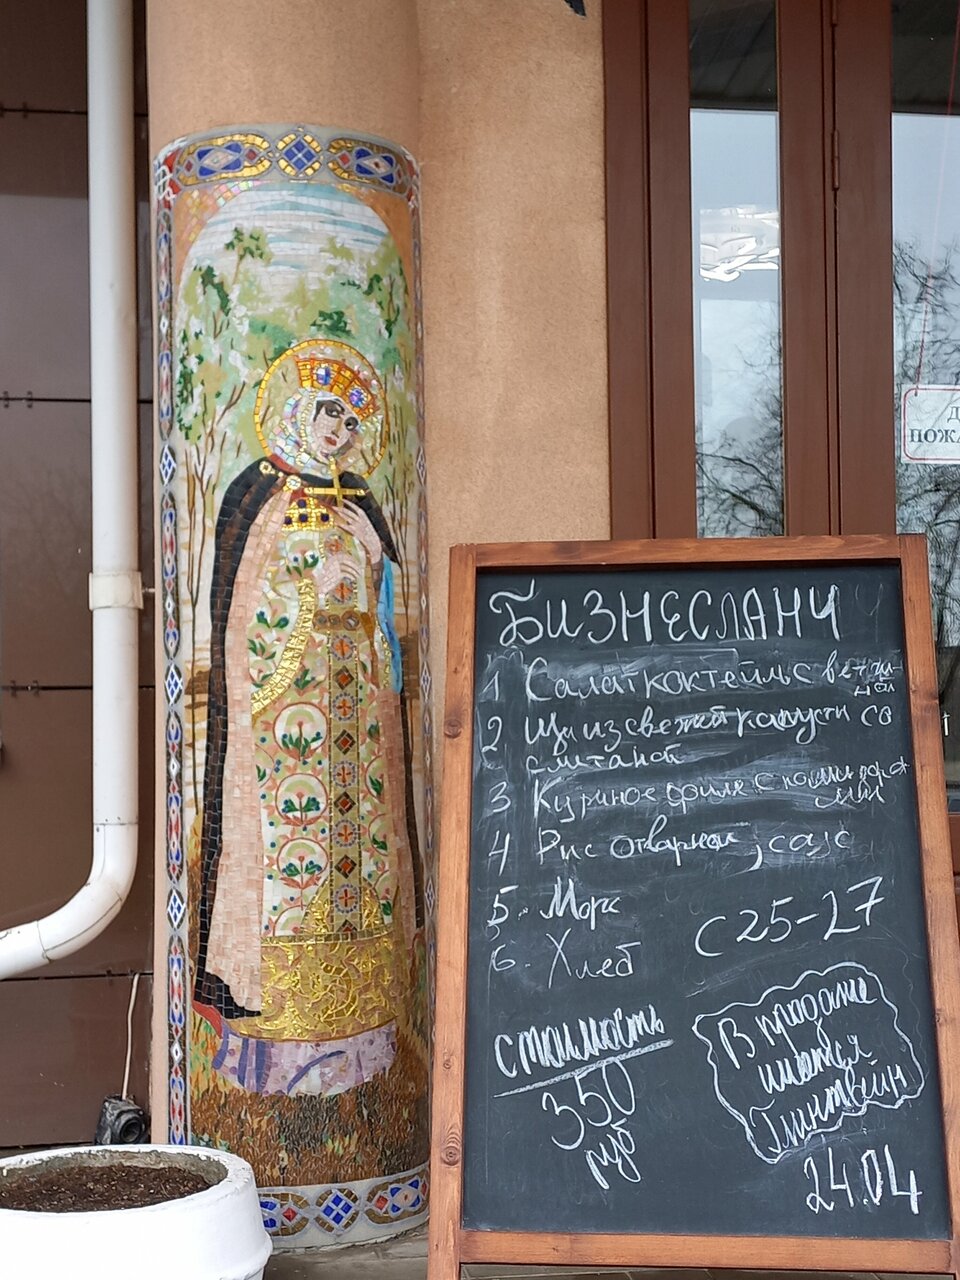 Д
ПОЖА
БИЗНЕСЛАНЧ
1 Салат коктейль с ветчи-
ной
2 Щи из свежей капусты со
сметаной
3 Куриное филе с помидора
ми
4 Рис отварной, соус
5. Морс
6. Хлеб
с 25-27
стоимость
350
руб
В продаже
имеется
Глинтвейн
24.04